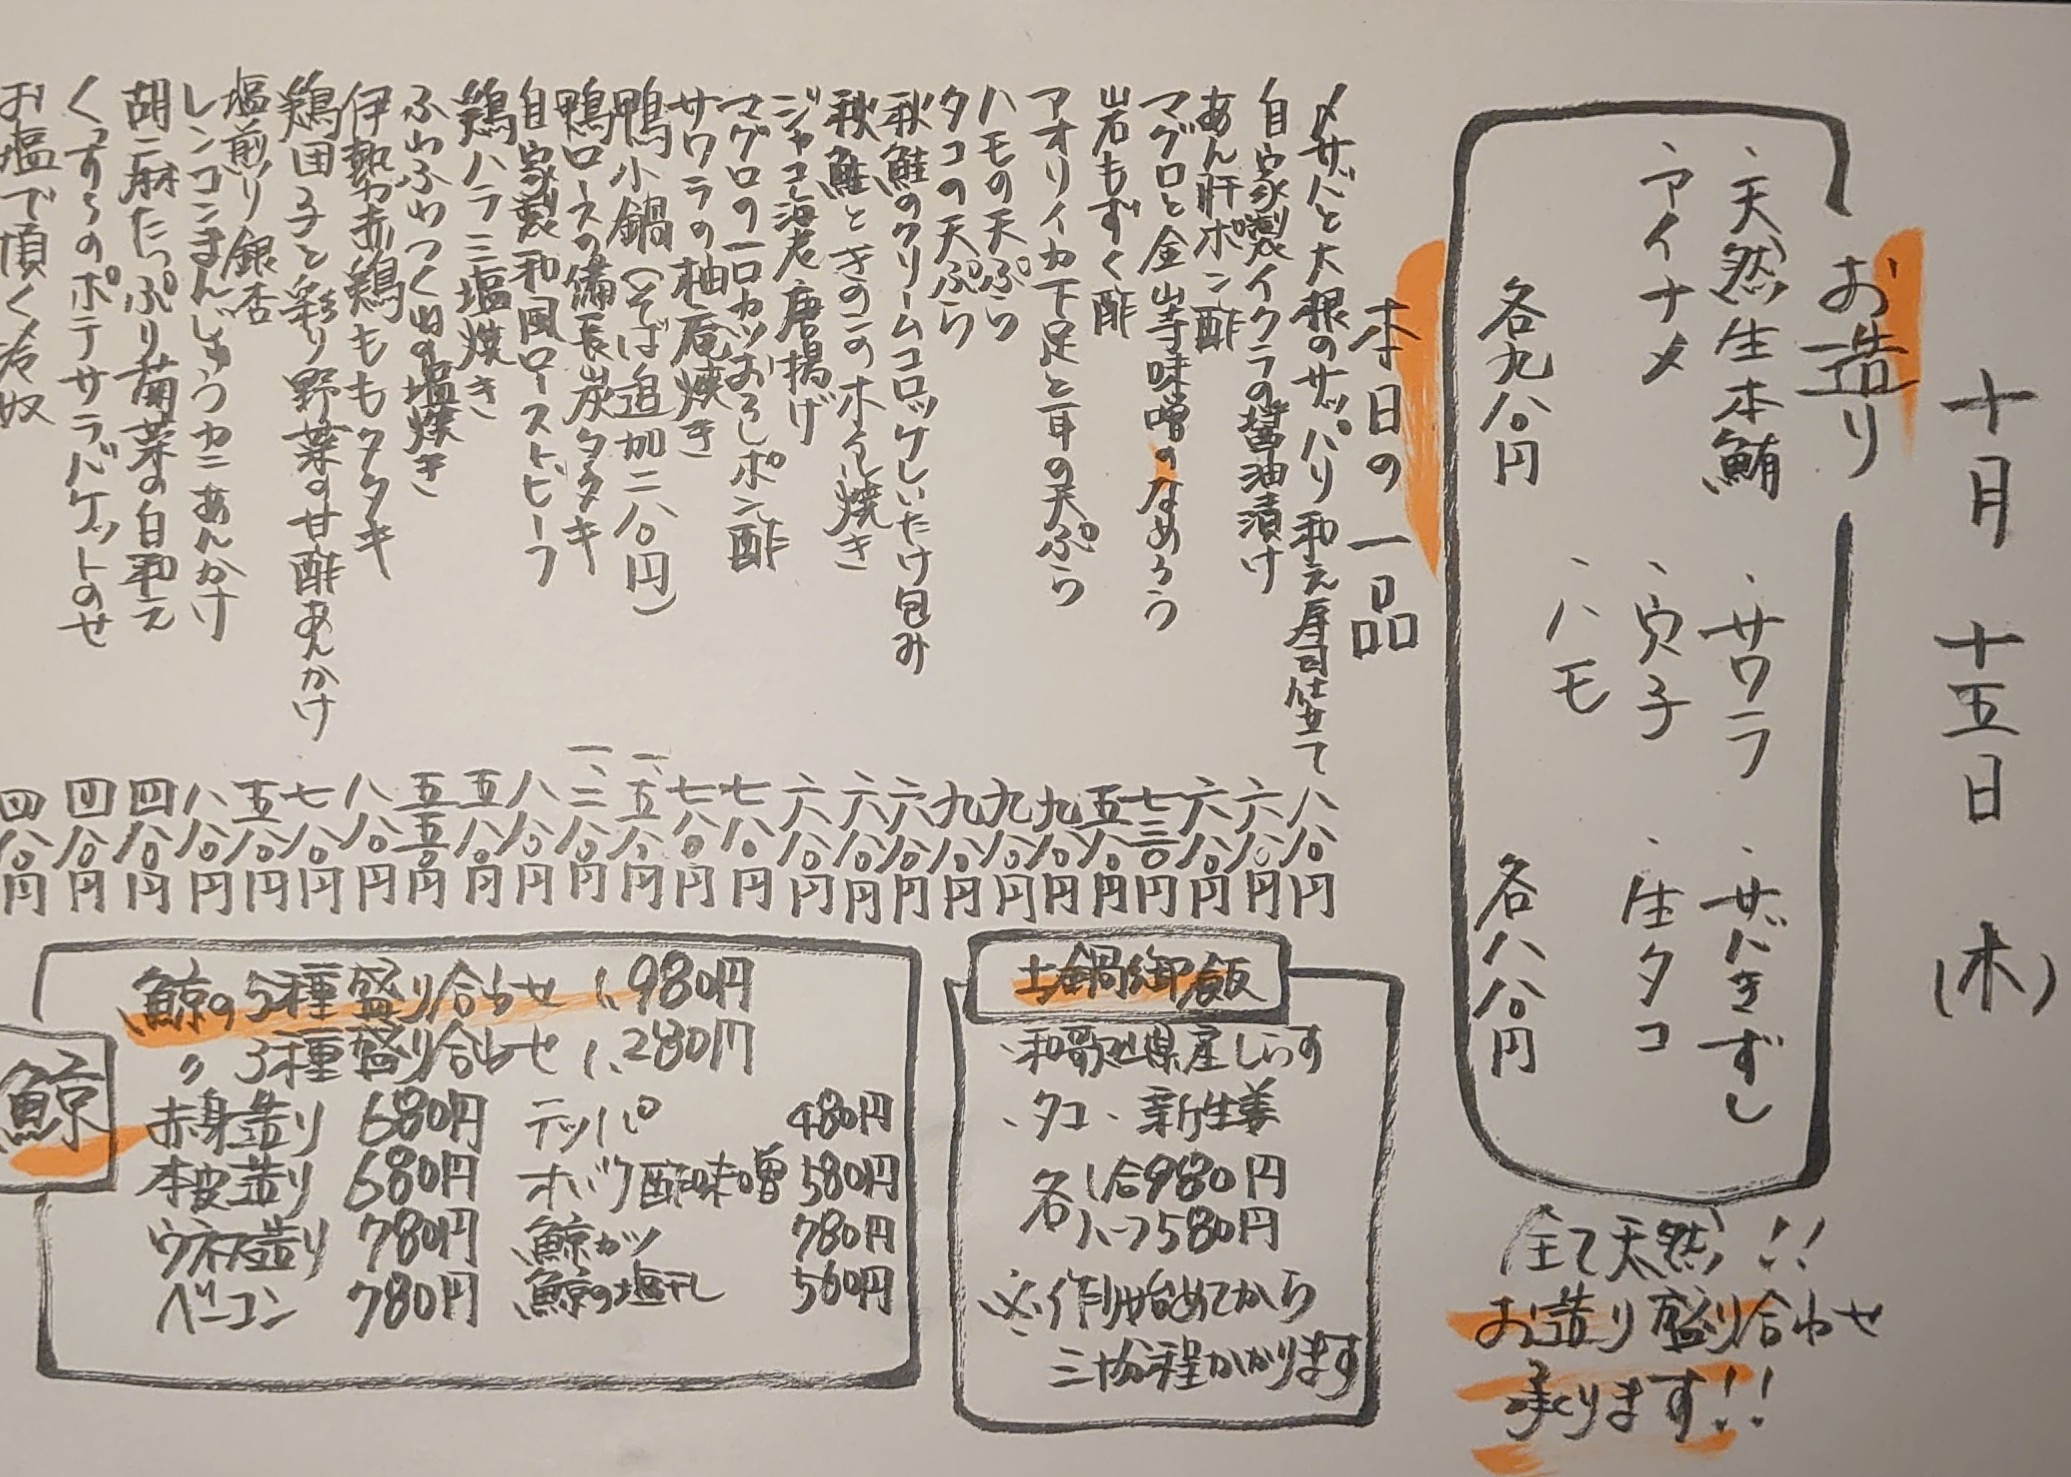 十月 十五日 (木)
お造り
・天然生本鮪 ・サワラ ・サバきずし
・アイナメ ・穴子 ・生タコ
・ハモ
各九八〇円 各八八〇円
全て天然!!
お造り盛り合わせ
承ります!!
本日の一品
〆サバと大根のサッパリ和え寿司仕立て 八八〇円
自家製イクラの醤油漬け 六八〇円
あん肝ポン酢 六八〇円
マグロと金山寺味噌のなめろう 七三〇円
岩もずく酢 五八〇円
アオリイカ下足と耳の天ぷら 九八〇円
ハモの天ぷら 九八〇円
タコの天ぷら 九八〇円
秋鮭のクリームコロッケしいたけ包み 六八〇円
秋鮭ときのこのホイル焼き 六八〇円
ジャコ海老唐揚げ 六八〇円
マグロの一口カツおろしポン酢 七八〇円
サワラの柚庵焼き 七八〇円
鴨小鍋(そば追加二八〇円) 一、五八〇円
鴨ロースの備長炭タタキ 一、二八〇円
自家製和風ローストビーフ 八八〇円
鶏ハラミ塩焼き 五八〇円
ふわふわつくねの塩焼き 五五〇円
伊勢赤鶏ももタタキ 八八〇円
鶏団子と彩り野菜の甘酢あんかけ 七八〇円
塩煎り銀杏 五八〇円
レンコンまんじゅうカニあんかけ 八八〇円
胡麻たっぷり菊菜の白和え 四八〇円
くずらのポテサラバケットのせ 四八〇円
お塩で頂く〆冷奴 四八〇円
土鍋御飯
・和歌山県産しらす
・タコ ・新生姜
各 1合980円
ハーフ580円
※作り始めてから
三十分程かかります
鯨
鯨の5種盛り合わせ 1,980円
〃 3種盛り合わせ 1,280円
赤身造り 680円 テッパ 480円
本皮造り 680円 オバケ酢味噌 580円
ウネス造り 780円 鯨カツ 780円
ベーコン 780円 鯨の塩干し 560円